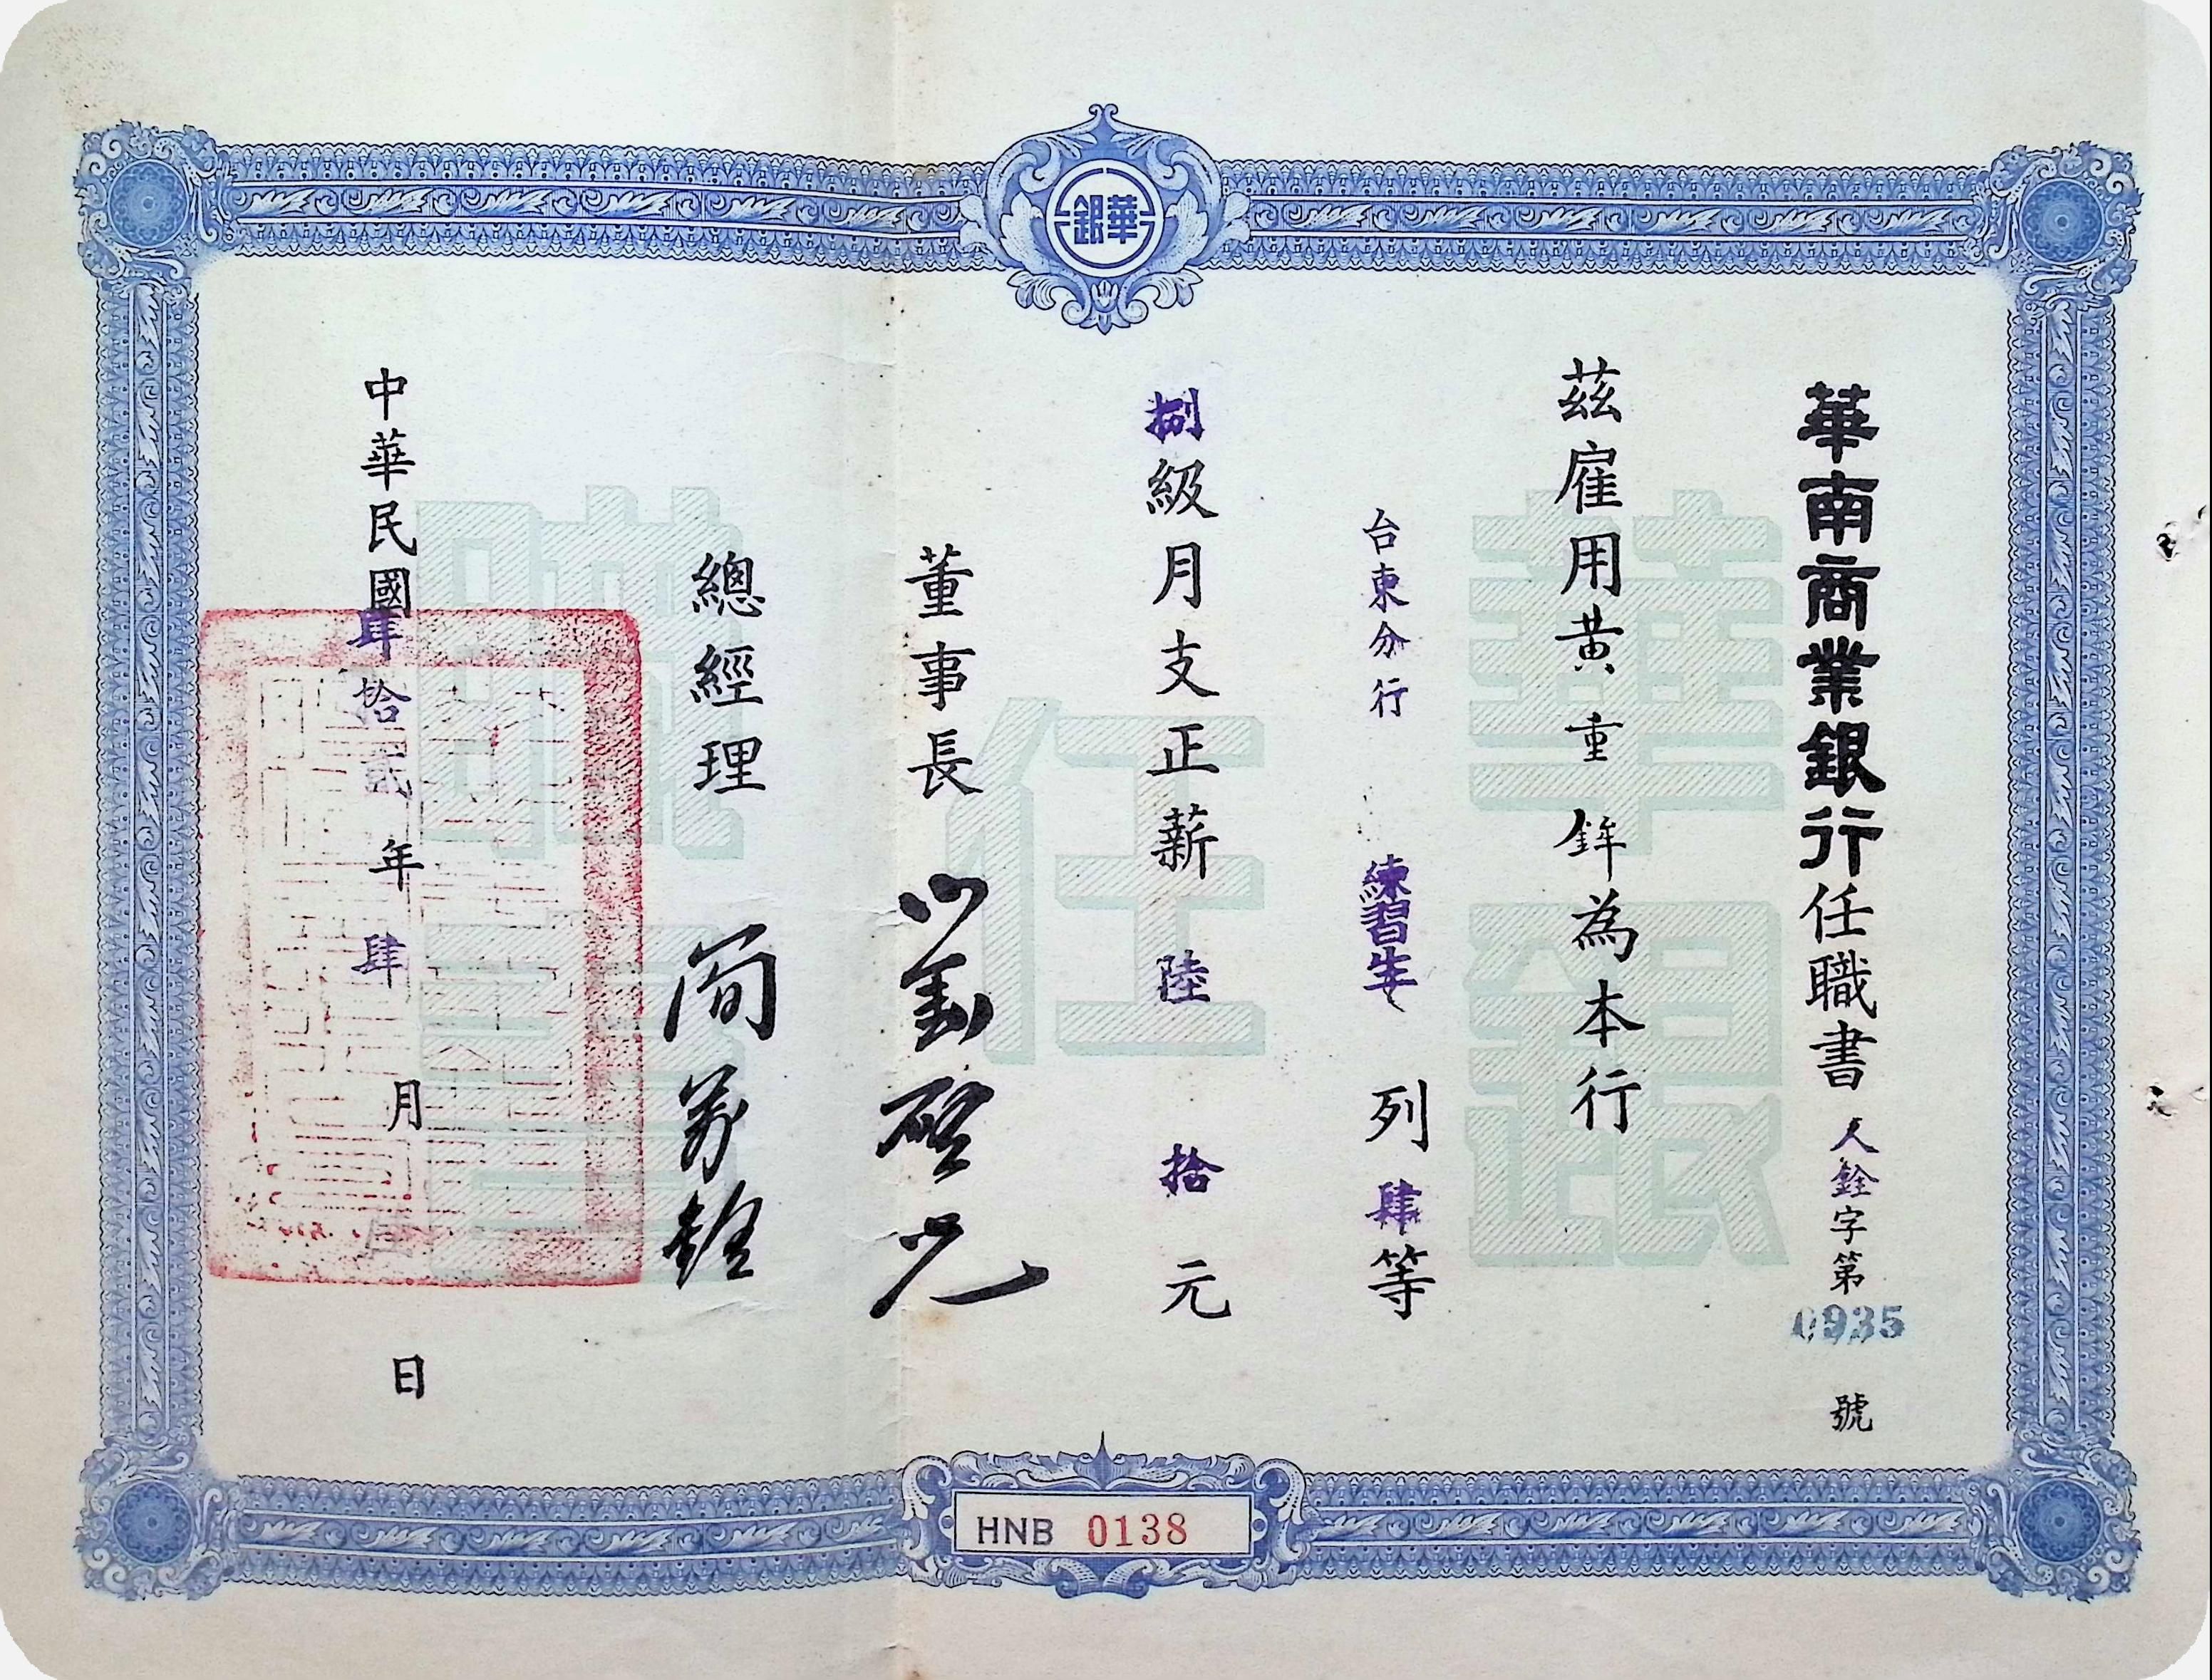 華銀
華南商業銀行任職書 人銓字第0935號
茲雇用黃重鉾為本行
台東分行 練習生 列肆等
捌級月支正薪陸拾元
董事長 劉啓光
總經理
中華民國肆拾貳年肆月 日
HNB 0138